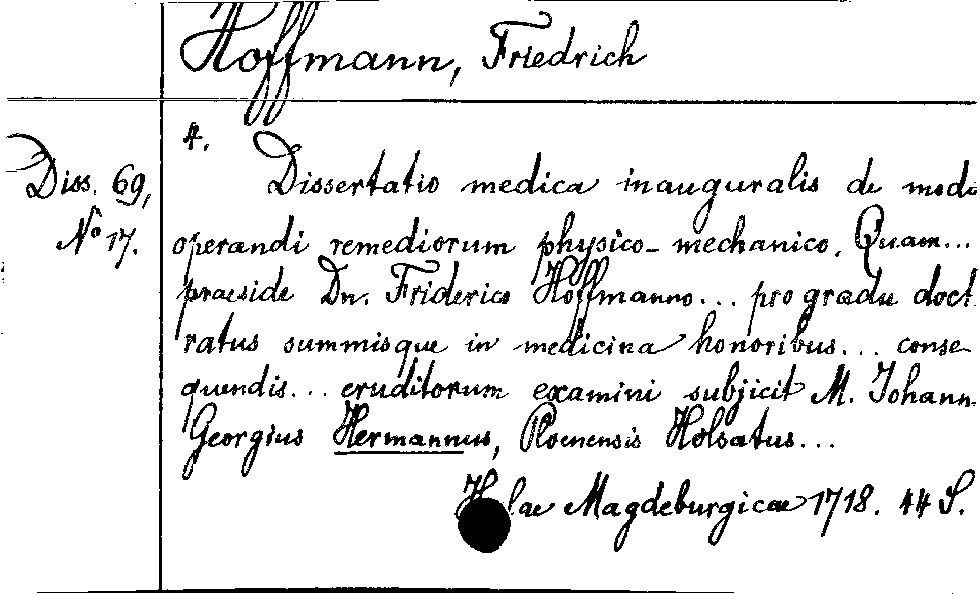 Hoffmann, Friedrich
4.
Diss. 69,
No 17.
Dissertatio medica inauguralis de modo
operandi remediorum physico-mechanico. Quam...
praeside Dn. Friderico Hoffmanno... pro gradu doct
ratus summisque in medicina honoribus... conse
quendis... eruditorum examini subjicit M. Johann
Georgius Hermannus, Ploenensis Holsatus...
Halae Magdeburgicae 1718. 44 S.